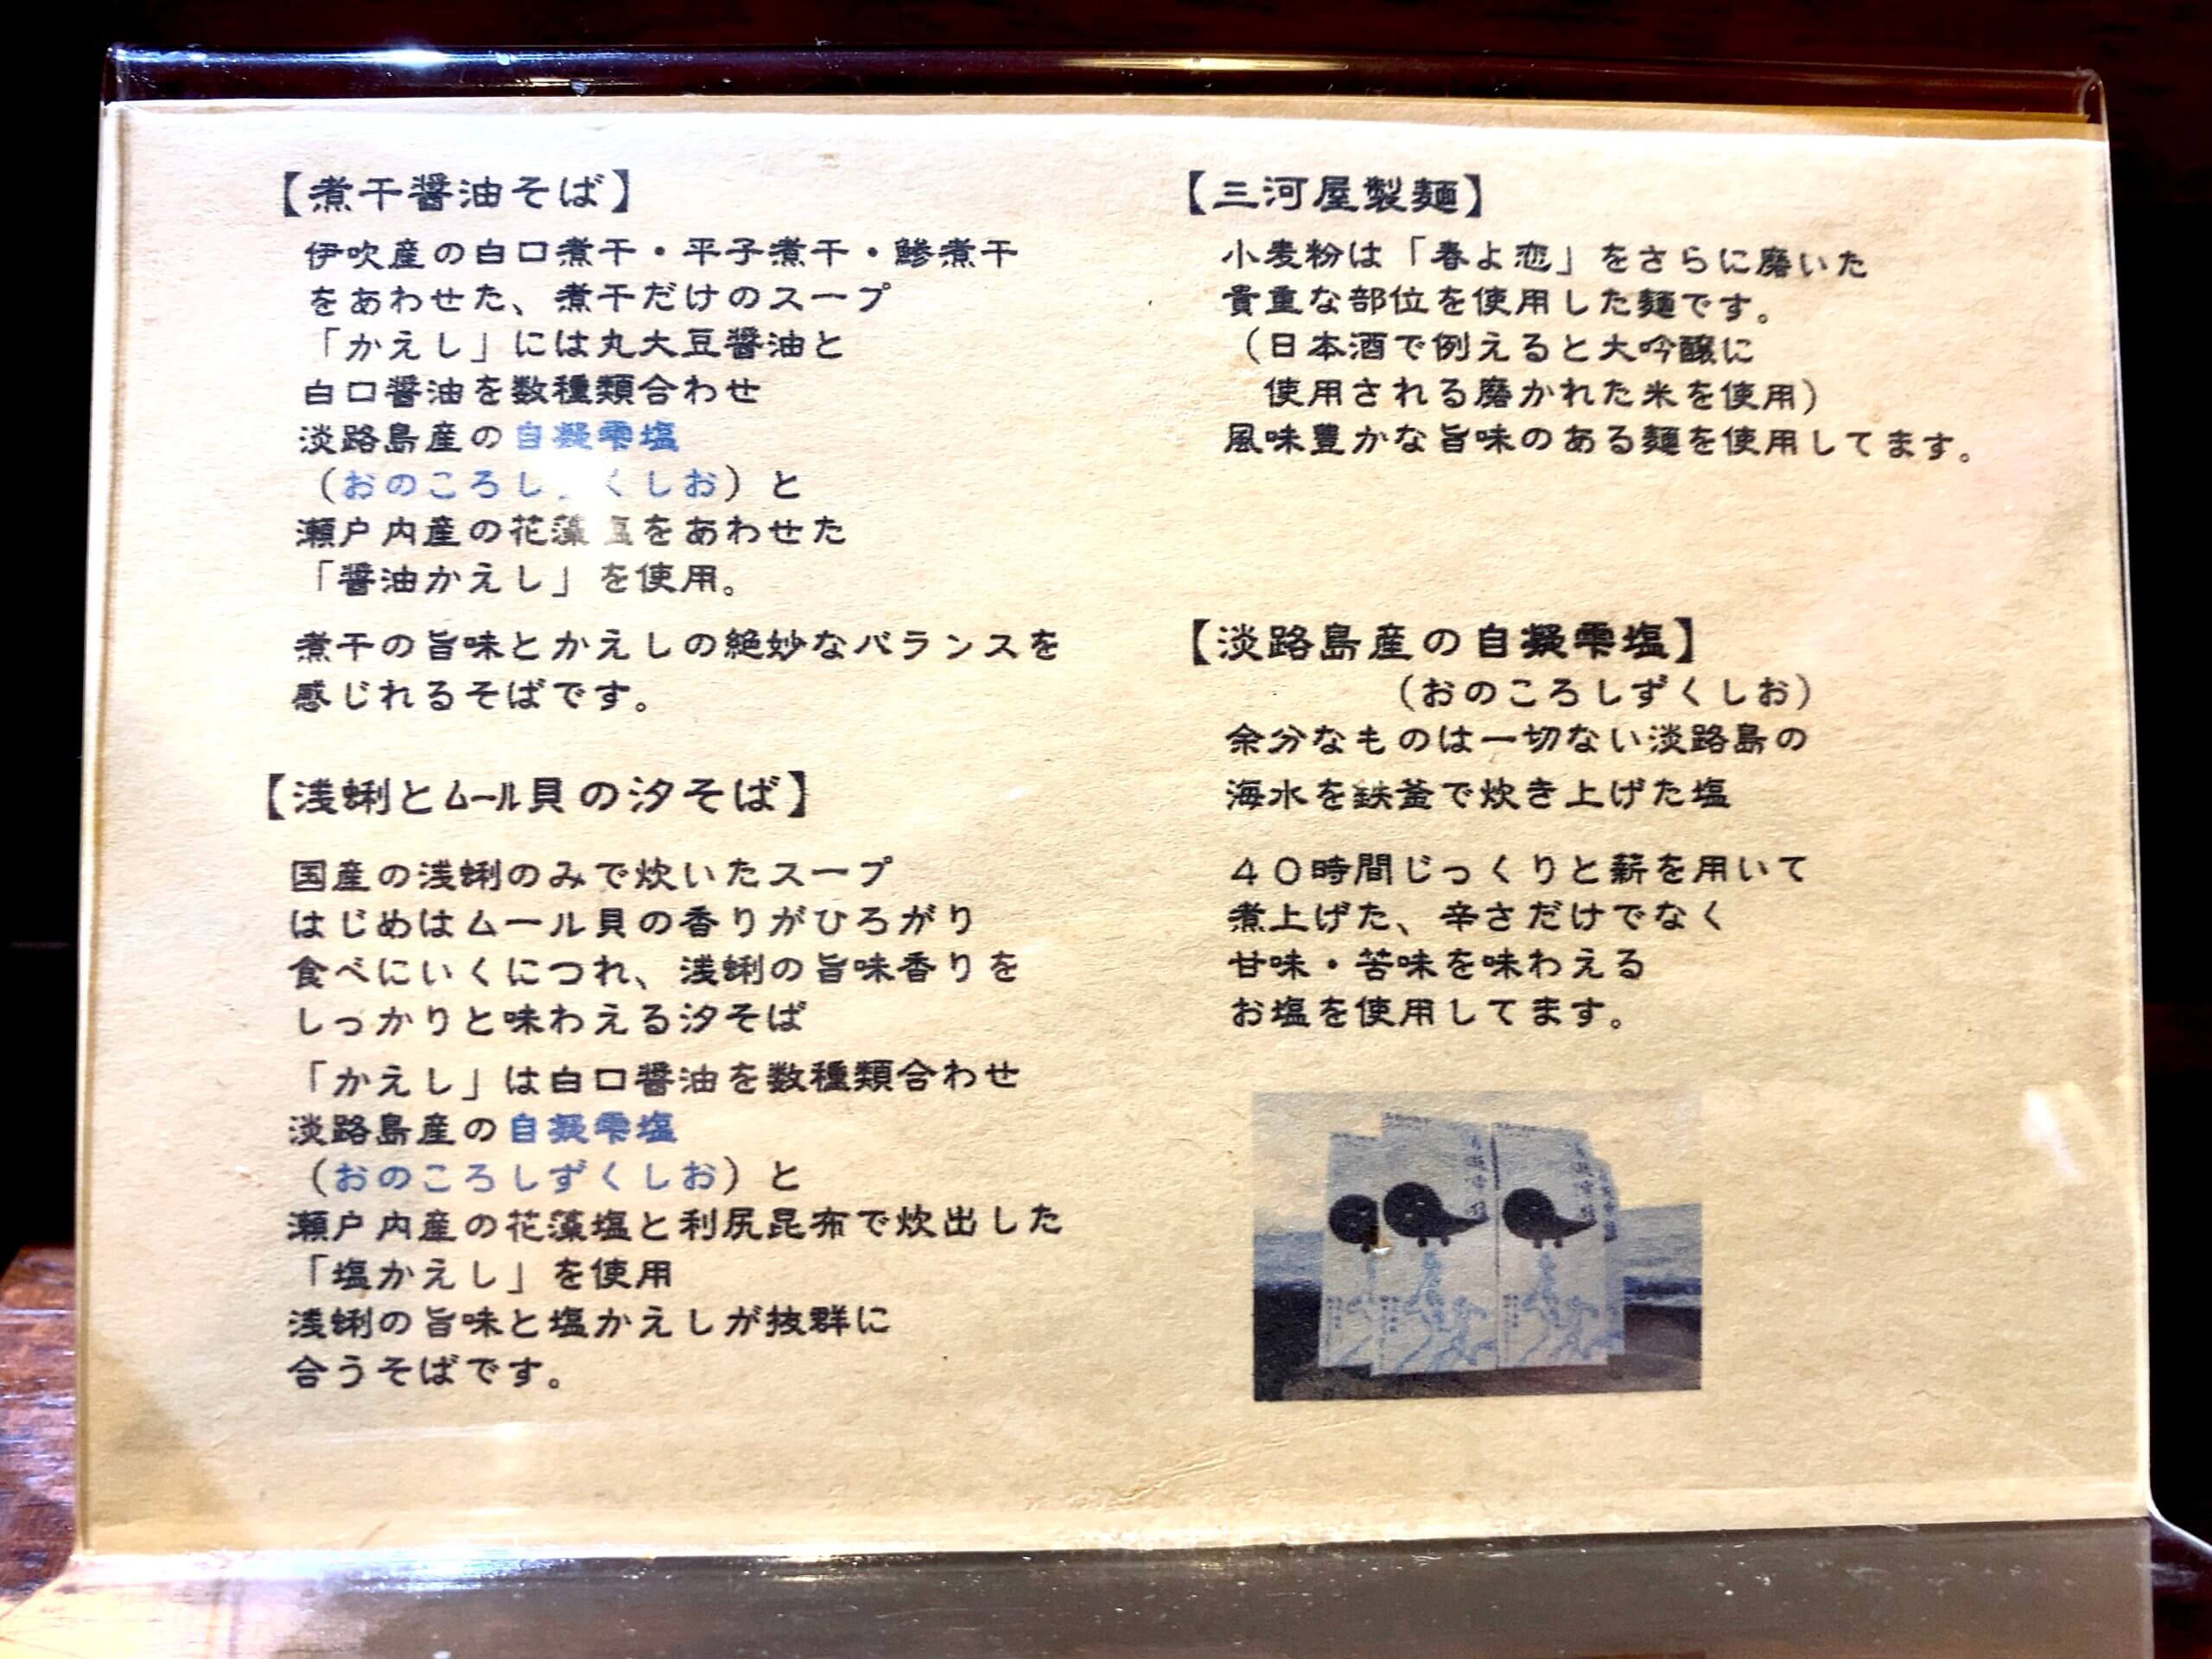 【煮干醤油そば】
伊吹産の白口煮干・平子煮干・鯵煮干
をあわせた、煮干だけのスープ
「かえし」には丸大豆醤油と
白口醤油を数種類合わせ
淡路島産の自凝雫塩
（おのころし くしお）と
瀬戸内産の花藻塩をあわせた
「醤油かえし」を使用。
煮干の旨味とかえしの絶妙なバランスを
感じれるそばです。
【浅蜊とムール貝の汐そば】
国産の浅蜊のみで炊いたスープ
はじめはムール貝の香りがひろがり
食べにいくにつれ、浅蜊の旨味香りを
しっかりと味わえる汐そば
「かえし」は白口醤油を数種類合わせ
淡路島産の自凝雫塩
（おのころしずくしお）と
瀬戸内産の花藻塩と利尻昆布で炊出した
「塩かえし」を使用
浅蜊の旨味と塩かえしが抜群に
合うそばです。
【三河屋製麺】
小麦粉は「春よ恋」をさらに磨いた
貴重な部位を使用した麺です。
（日本酒で例えると大吟醸に
使用される磨かれた米を使用）
風味豊かな旨味のある麺を使用してます。
【淡路島産の自凝雫塩】
（おのころしずくしお）
余分なものは一切ない淡路島の
海水を鉄釜で炊き上げた塩
４０時間じっくりと薪を用いて
煮上げた、辛さだけでなく
甘味・苦味を味わえる
お塩を使用してます。